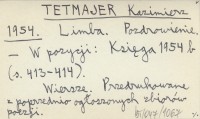 TETMAJER Kazimierz
1954. Limba. Pozdrowienie.
– W pozycji: Księga 1954 b
(s. 413–414).
Wiersze. Przedrukowane
z poprzednio ogłoszonych zbiorów
poezji.